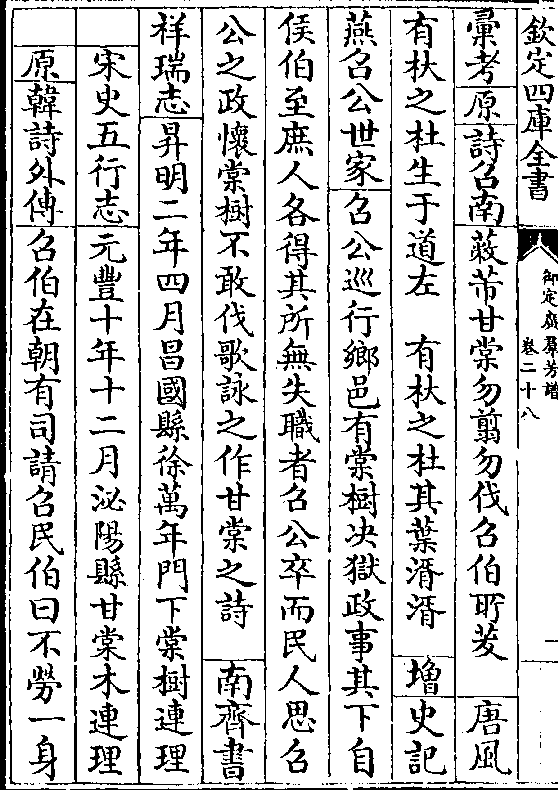 欽定四庫全書
御定廣羣芳譜
卷二十八
彚考原詩召南蔽芾甘棠勿翦勿伐召伯所茇 唐風
有杕之杜生于道左 有杕之杜其葉湑湑 增史記
燕召公世家召公巡行鄉邑有棠樹决獄政事其下自
侯伯至庶人各得其所無失職者召公卒而民人思召
公之政懷棠樹不敢伐歌詠之作甘棠之詩 南齊書
祥瑞志昇明二年四月昌國縣徐萬年門下棠樹連理
宋史五行志元豐十年十二月泌陽縣甘棠木連理
原韓詩外傳召伯在朝有司請召民伯曰不勞一身